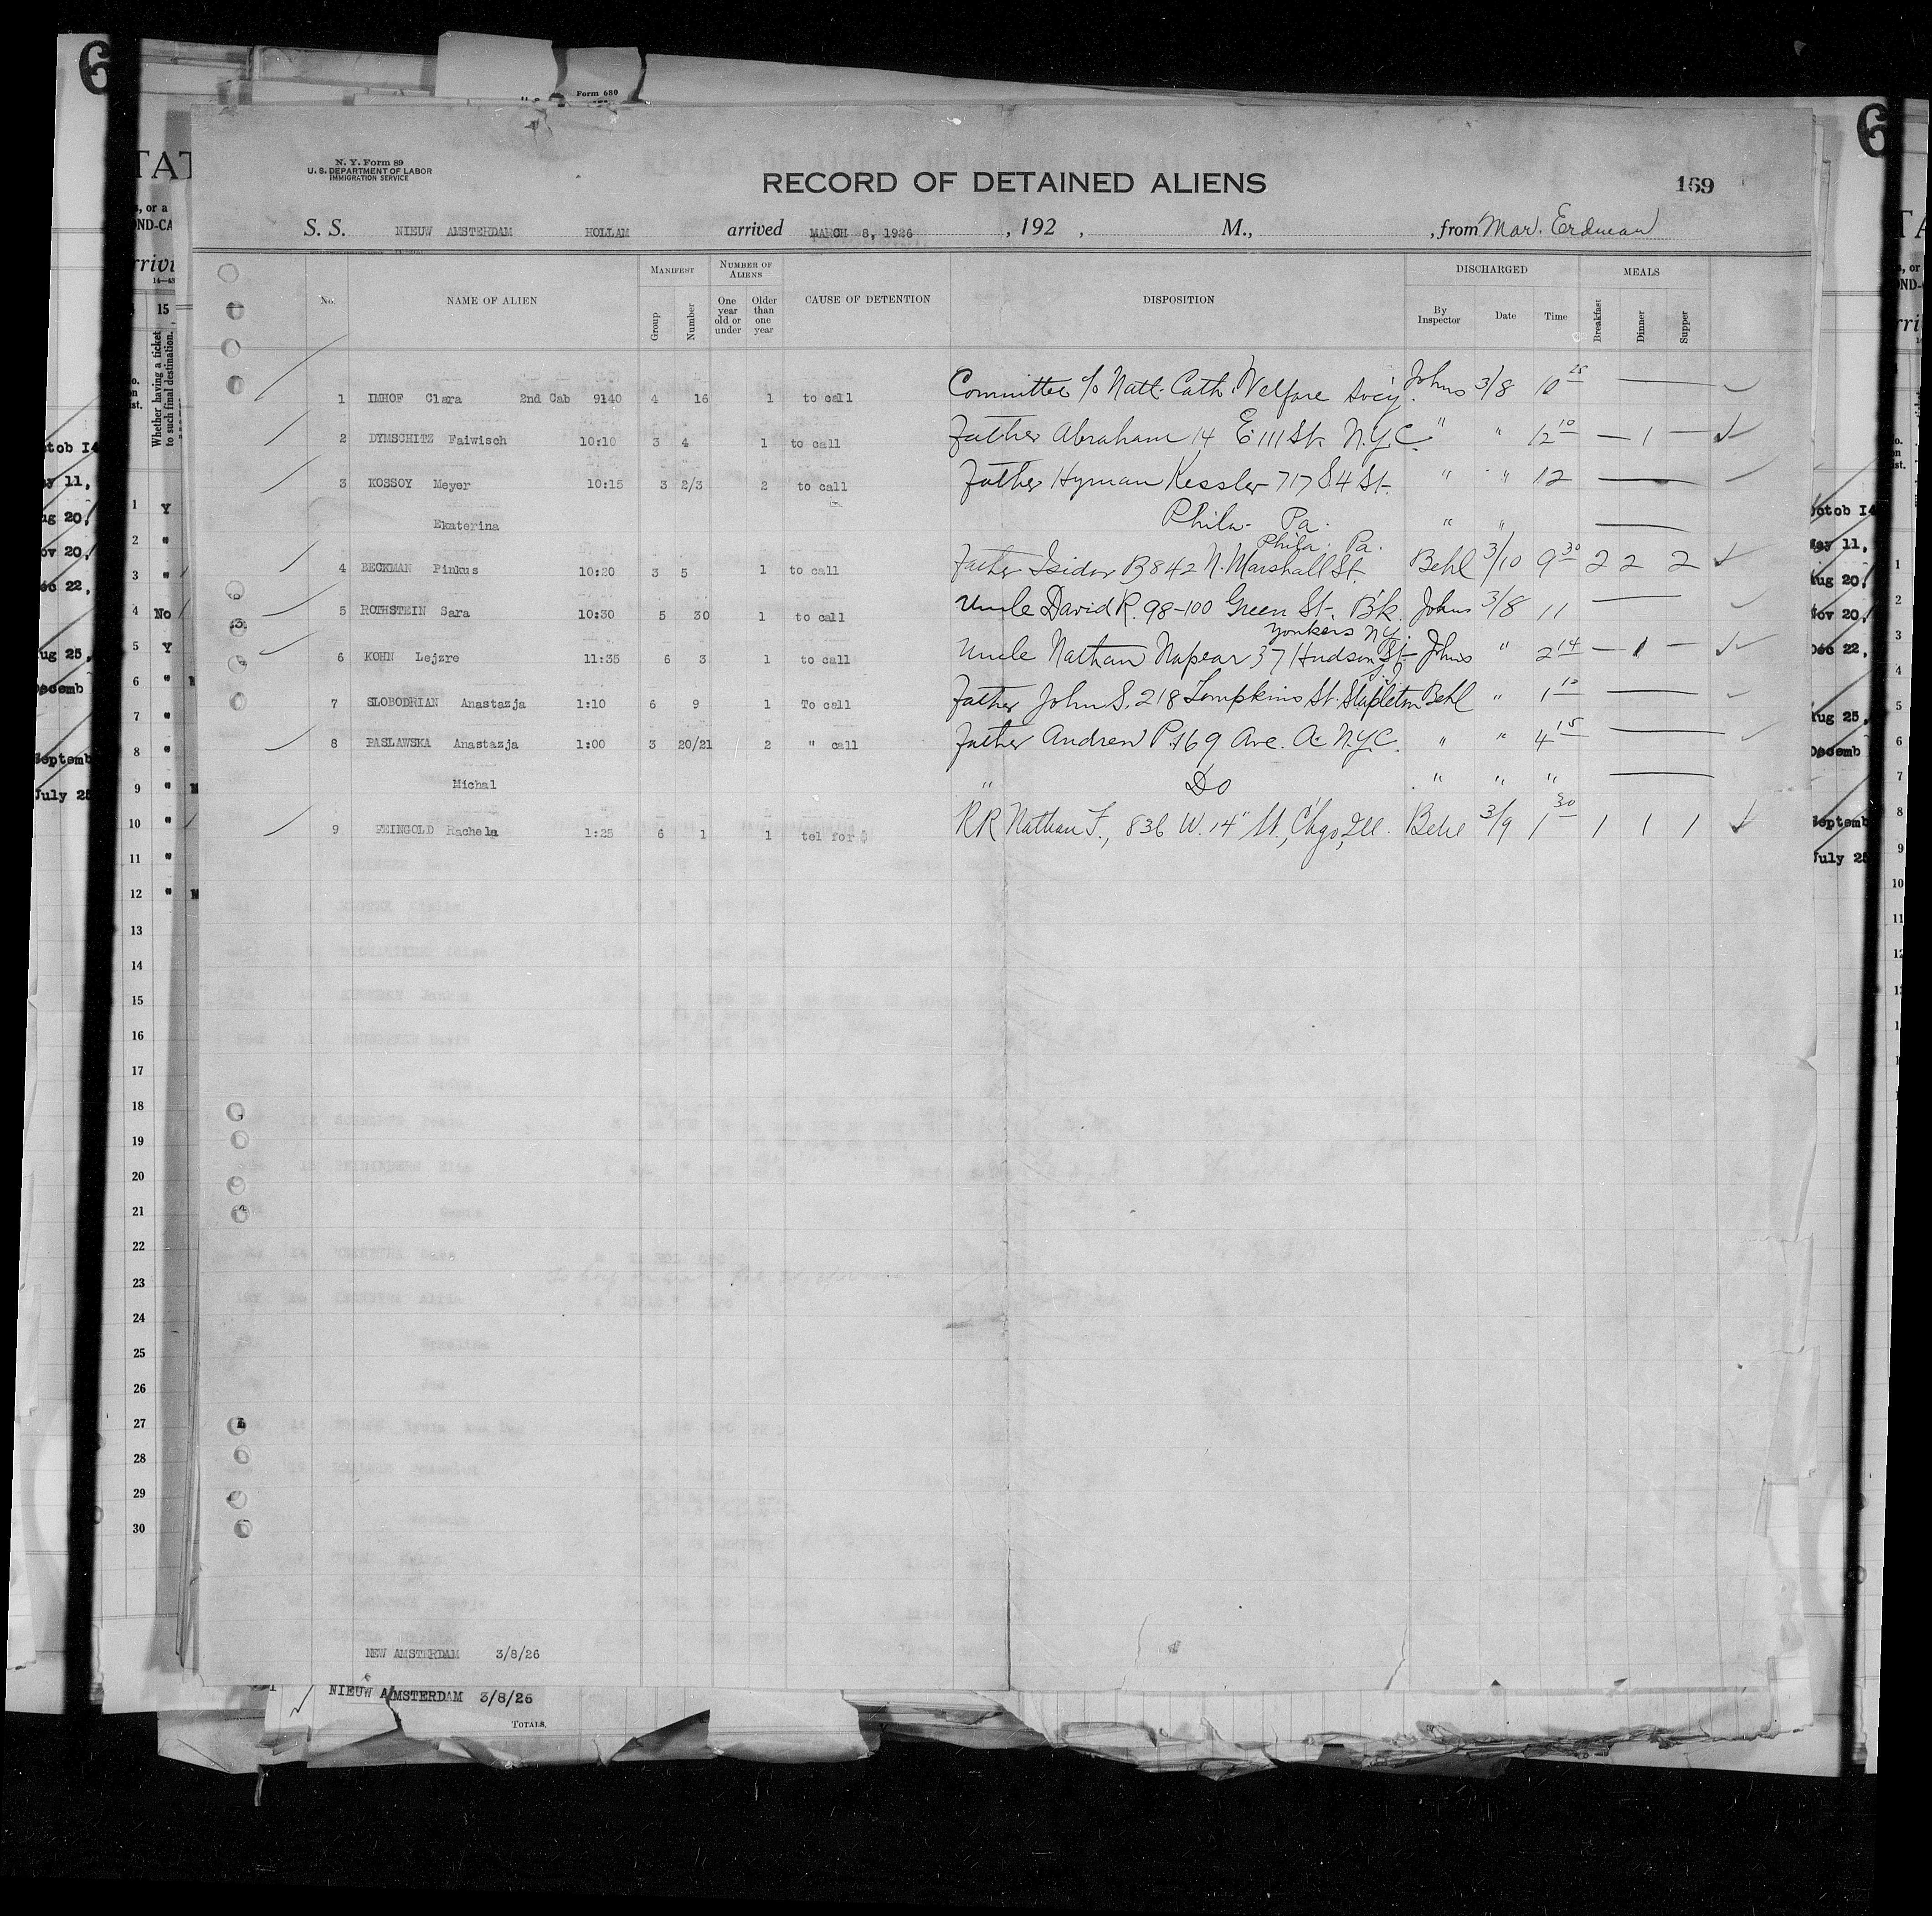 Form 680
N. Y. Form 89
U. S. DEPARTMENT OF LABOR
IMMIGRATION SERVICE
RECORD OF DETAINED ALIENS
169
S. S. NIEUW AMSTERDAM HOLLAM arrived MARCH 8, 1926, 192 , M., , from Mar. Erdman
No. NAME OF ALIEN MANIFEST Group Number NUMBER OF ALIENS One year old or under Older than one year CAUSE OF DETENTION DISPOSITION DISCHARGED By Inspector Date Time MEALS Breakfast Dinner Supper
1 IMHOF Clara 2nd Cab 9140 4 16 1 to call Committee c/o Natl. Cath. Welfare Socy. Johns 3/8 10 15 —
2 DYMSCHITZ Faiwisch 10:10 3 4 1 to call Father Abraham 14 E 111 St. N.Y.C. " " 12 10 — 1 —
3 KOSSOY Meyer 10:15 3 2/3 2 to call Father Hyman Kessler 717 S 4 St. " " 12 —
Ekaterina Phila. Pa. " " —
Phila. Pa.
4 BECKMAN Pinkus 10:20 3 5 1 to call Father Isidor B 842 N. Marshall St. Behl 3/10 9 30 2 2 2
5 ROTHSTEIN Sara 10:30 5 30 1 to call Uncle David R. 98-100 Green St. B'k. Johns 3/8 11 —
Yonkers NY
6 KOHN Lejzre 11:35 6 3 1 to call Uncle Nathan Napear 37 Hudson St. Johns " 2 14 — 1 —
S.I.
7 SLOBODRIAN Anastazja 1:10 6 9 1 To call Father John S. 218 Tompkins St. Stapleton Behl " 1 10 —
8 PASLAWSKA Anastazja 1:00 3 20/21 2 " call Father Andrew P. 169 Ave. A. N.Y.C. " " 4 15 —
Michal " Do " " " —
9 FEINGOLD Rachela 1:25 6 1 1 tel for $ RR Nathan F., 836 W. 14" St., Chgo, Ill. Behl 3/9 1 30 1 1 1
NEW AMSTERDAM 3/8/26
NIEUW AMSTERDAM 3/8/26
TOTALS,